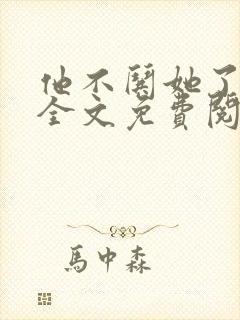 他不闋她了
全文免費閱
馬中森